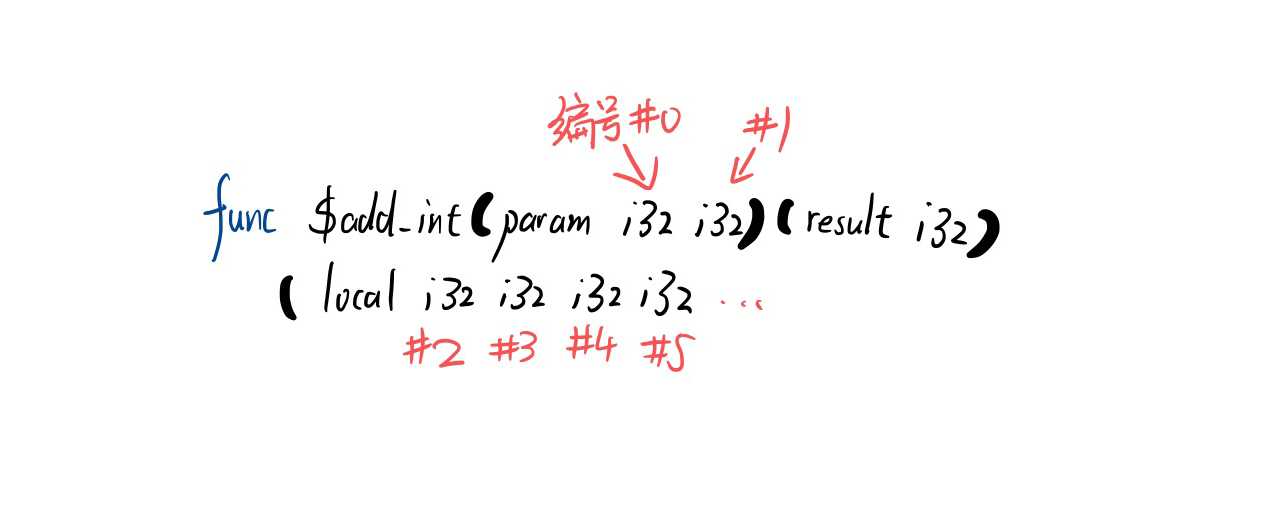 编号#0 #1
func $add_int(param i32 i32)(result i32)
(local i32 i32 i32 i32 ...
#2 #3 #4 #5